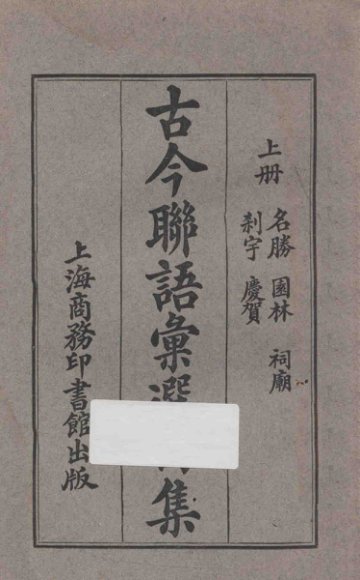 上册
名勝 園林 祠廟
刹宇 慶賀
古今聯語彙選集
上海商務印書館出版